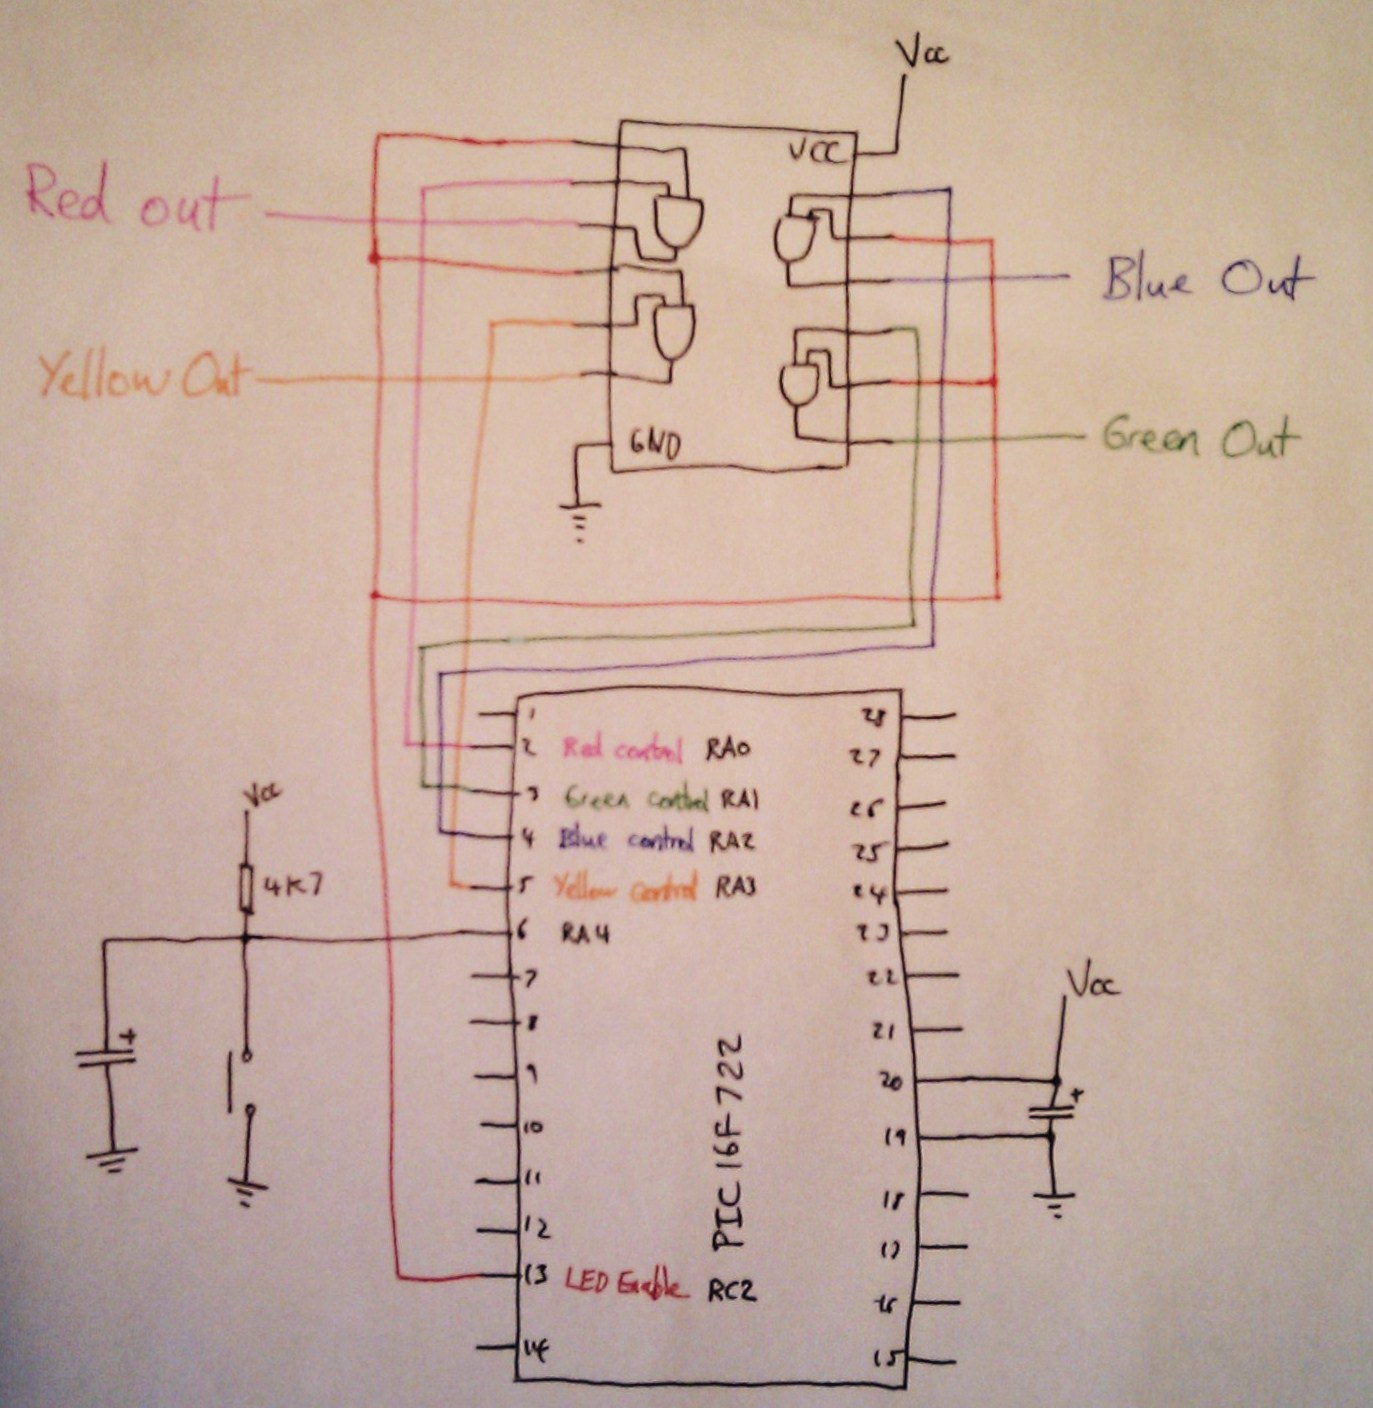 Vcc
VCC
Red out
Blue Out
Yellow Out
Green Out
GND
1
28
2 Red control RA0
27
3 Green control RA1
26
4 Blue control RA2
25
5 Yellow control RA3
24
6 RA4
23
Vcc
4K7
7
22
Vcc
8
21
9
20
+
+
10
19
11
18
12
17
PIC16F722
13 LED Enable RC2
16
14
15